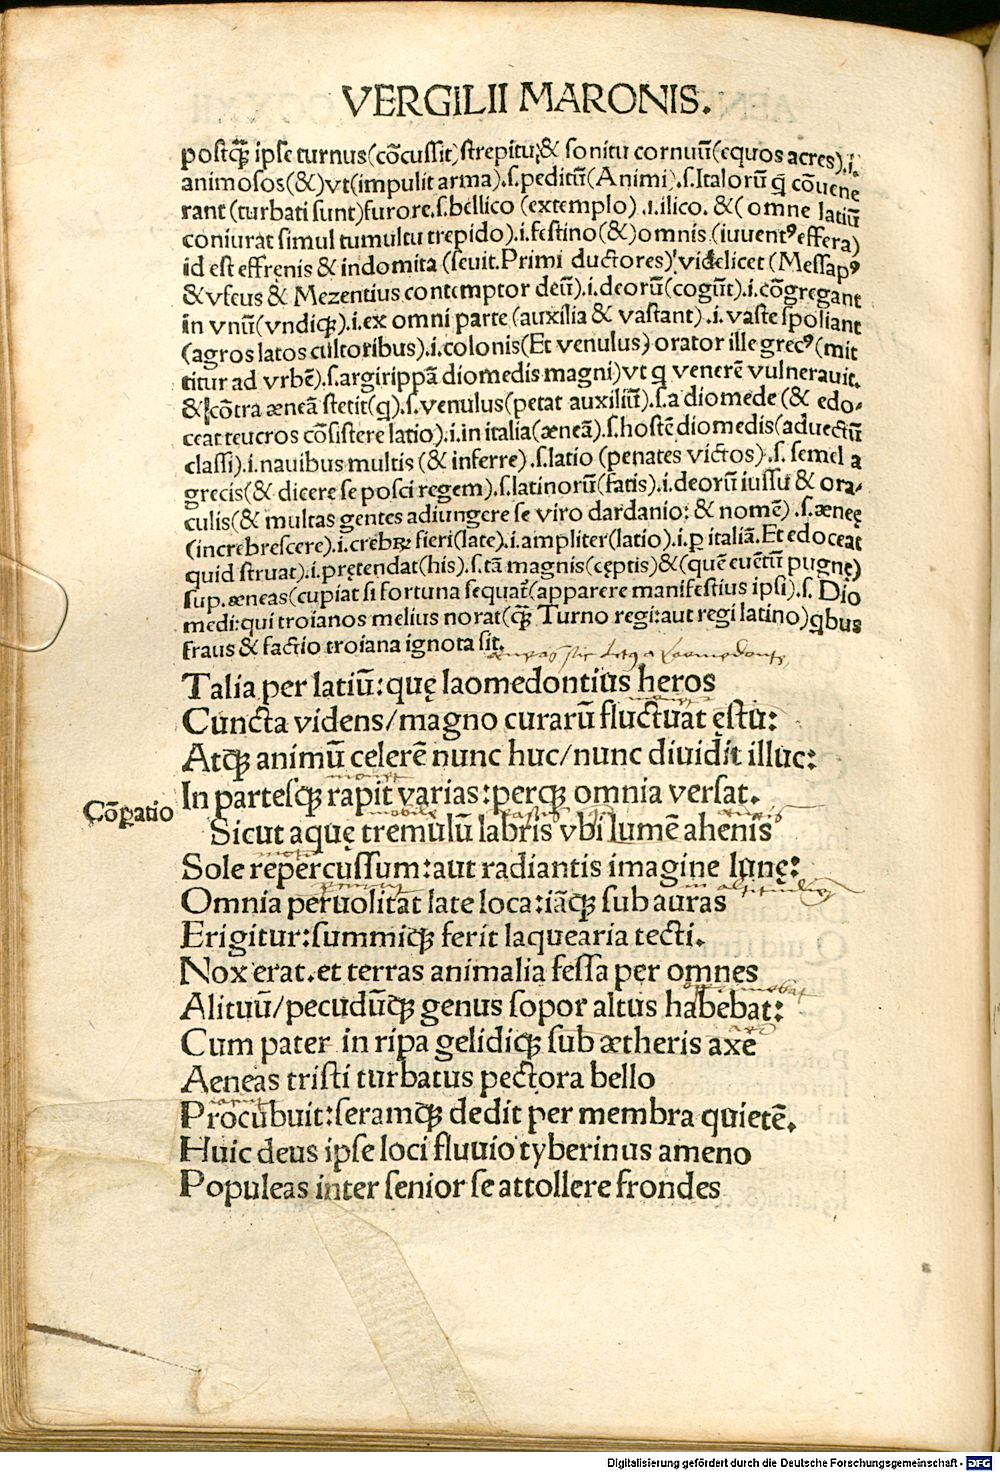 VERGILII MARONIS.
postꝙ̃ ipse turnus(cõcussit)strepitu:& sonitu cornuũ(equos acres).i.
animosos(&)vt(impulit arma).s.peditũ(Animi).s.Italorũ q̃ cõuene
rant(turbati sunt)furore.s.bellico (extemplo).i.ilico. &( omne latiũ
coniurat simul tumultu trepido).i.festino(&)omnis (iuuentꝰ effera)
id est effrenis & indomita (seuit.Primi ductores) videlicet (Messapꝰ
& vfeus & Mezentius contemptor deũ).i.deorũ(cogũt).i.cõgregant
in vnũ(vndiqꝫ).i.ex omni parte (auxilia & vastant).i.vaste spoliant
(agros latos cultoribus).i.colonis(Et venulus) orator ille grecꝰ(mit
titur ad vrbẽ).s.argirippã diomedis magni)vt q venerẽ vulnerauit.
& cõtra æneã stetit(q).s.venulus(petat auxiliũ).s.a diomede (& edo-
ceat teucros cõsistere latio).i.in italia(æneã).s.hostẽ diomedis(aduectũ
classi).i.nauibus multis (& inferre).s.latio (penates victos).s. semel a
grecis(& dicere se posci regem).s.latinorũ(fatis).i.deorũ iussu & ora-
culis(& multas gentes adiungere se viro dardanio: & nomẽ).s.æneę
(increbrescere).i.crebrꝝ fieri(late).i.ampliter(latio).i.ꝑ italiã.Et edoceat
quid struat).i.prętendat(his).s.tã magnis(cęptis)&(quẽ euẽtũ pugnę)
sup.æneas(cupiat si fortuna sequat᷑(apparere manifestius ipsi).s. Dio
medi:qui troianos melius norat(ꝙ̃ Turno regi:aut regi latino)qbus
fraus & factio troiana ignota sit.
Talia per latiũ:quę laomedontius heros
Cuncta videns/magno curarũ fluctuat ęstu:
Atqꝫ animũ celerẽ nunc huc/nunc diuidit illuc:
In partesqꝫ rapit varias:perqꝫ omnia versat.
Cõꝑatio
Sicut aquę tremulũ labris vbi lumẽ ahenis
Sole repercussum:aut radiantis imagine lunę:
Omnia peruolitat late loca:iãqꝫ sub auras
Erigitur:summiqꝫ ferit laquearia tecti.
Nox erat.et terras animalia fessa per omnes
Alituũ/pecudũqꝫ genus sopor altus habebat:
Cum pater in ripa gelidiqꝫ sub ætheris axe
Aeneas tristi turbatus pectora bello
Procubuit:seramqꝫ dedit per membra quietẽ.
Huic deus ipse loci fluuio tyberinus ameno
Populeas inter senior se attollere frondes
Digitalisierung gefördert durch die Deutsche Forschungsgemeinschaft - DFG